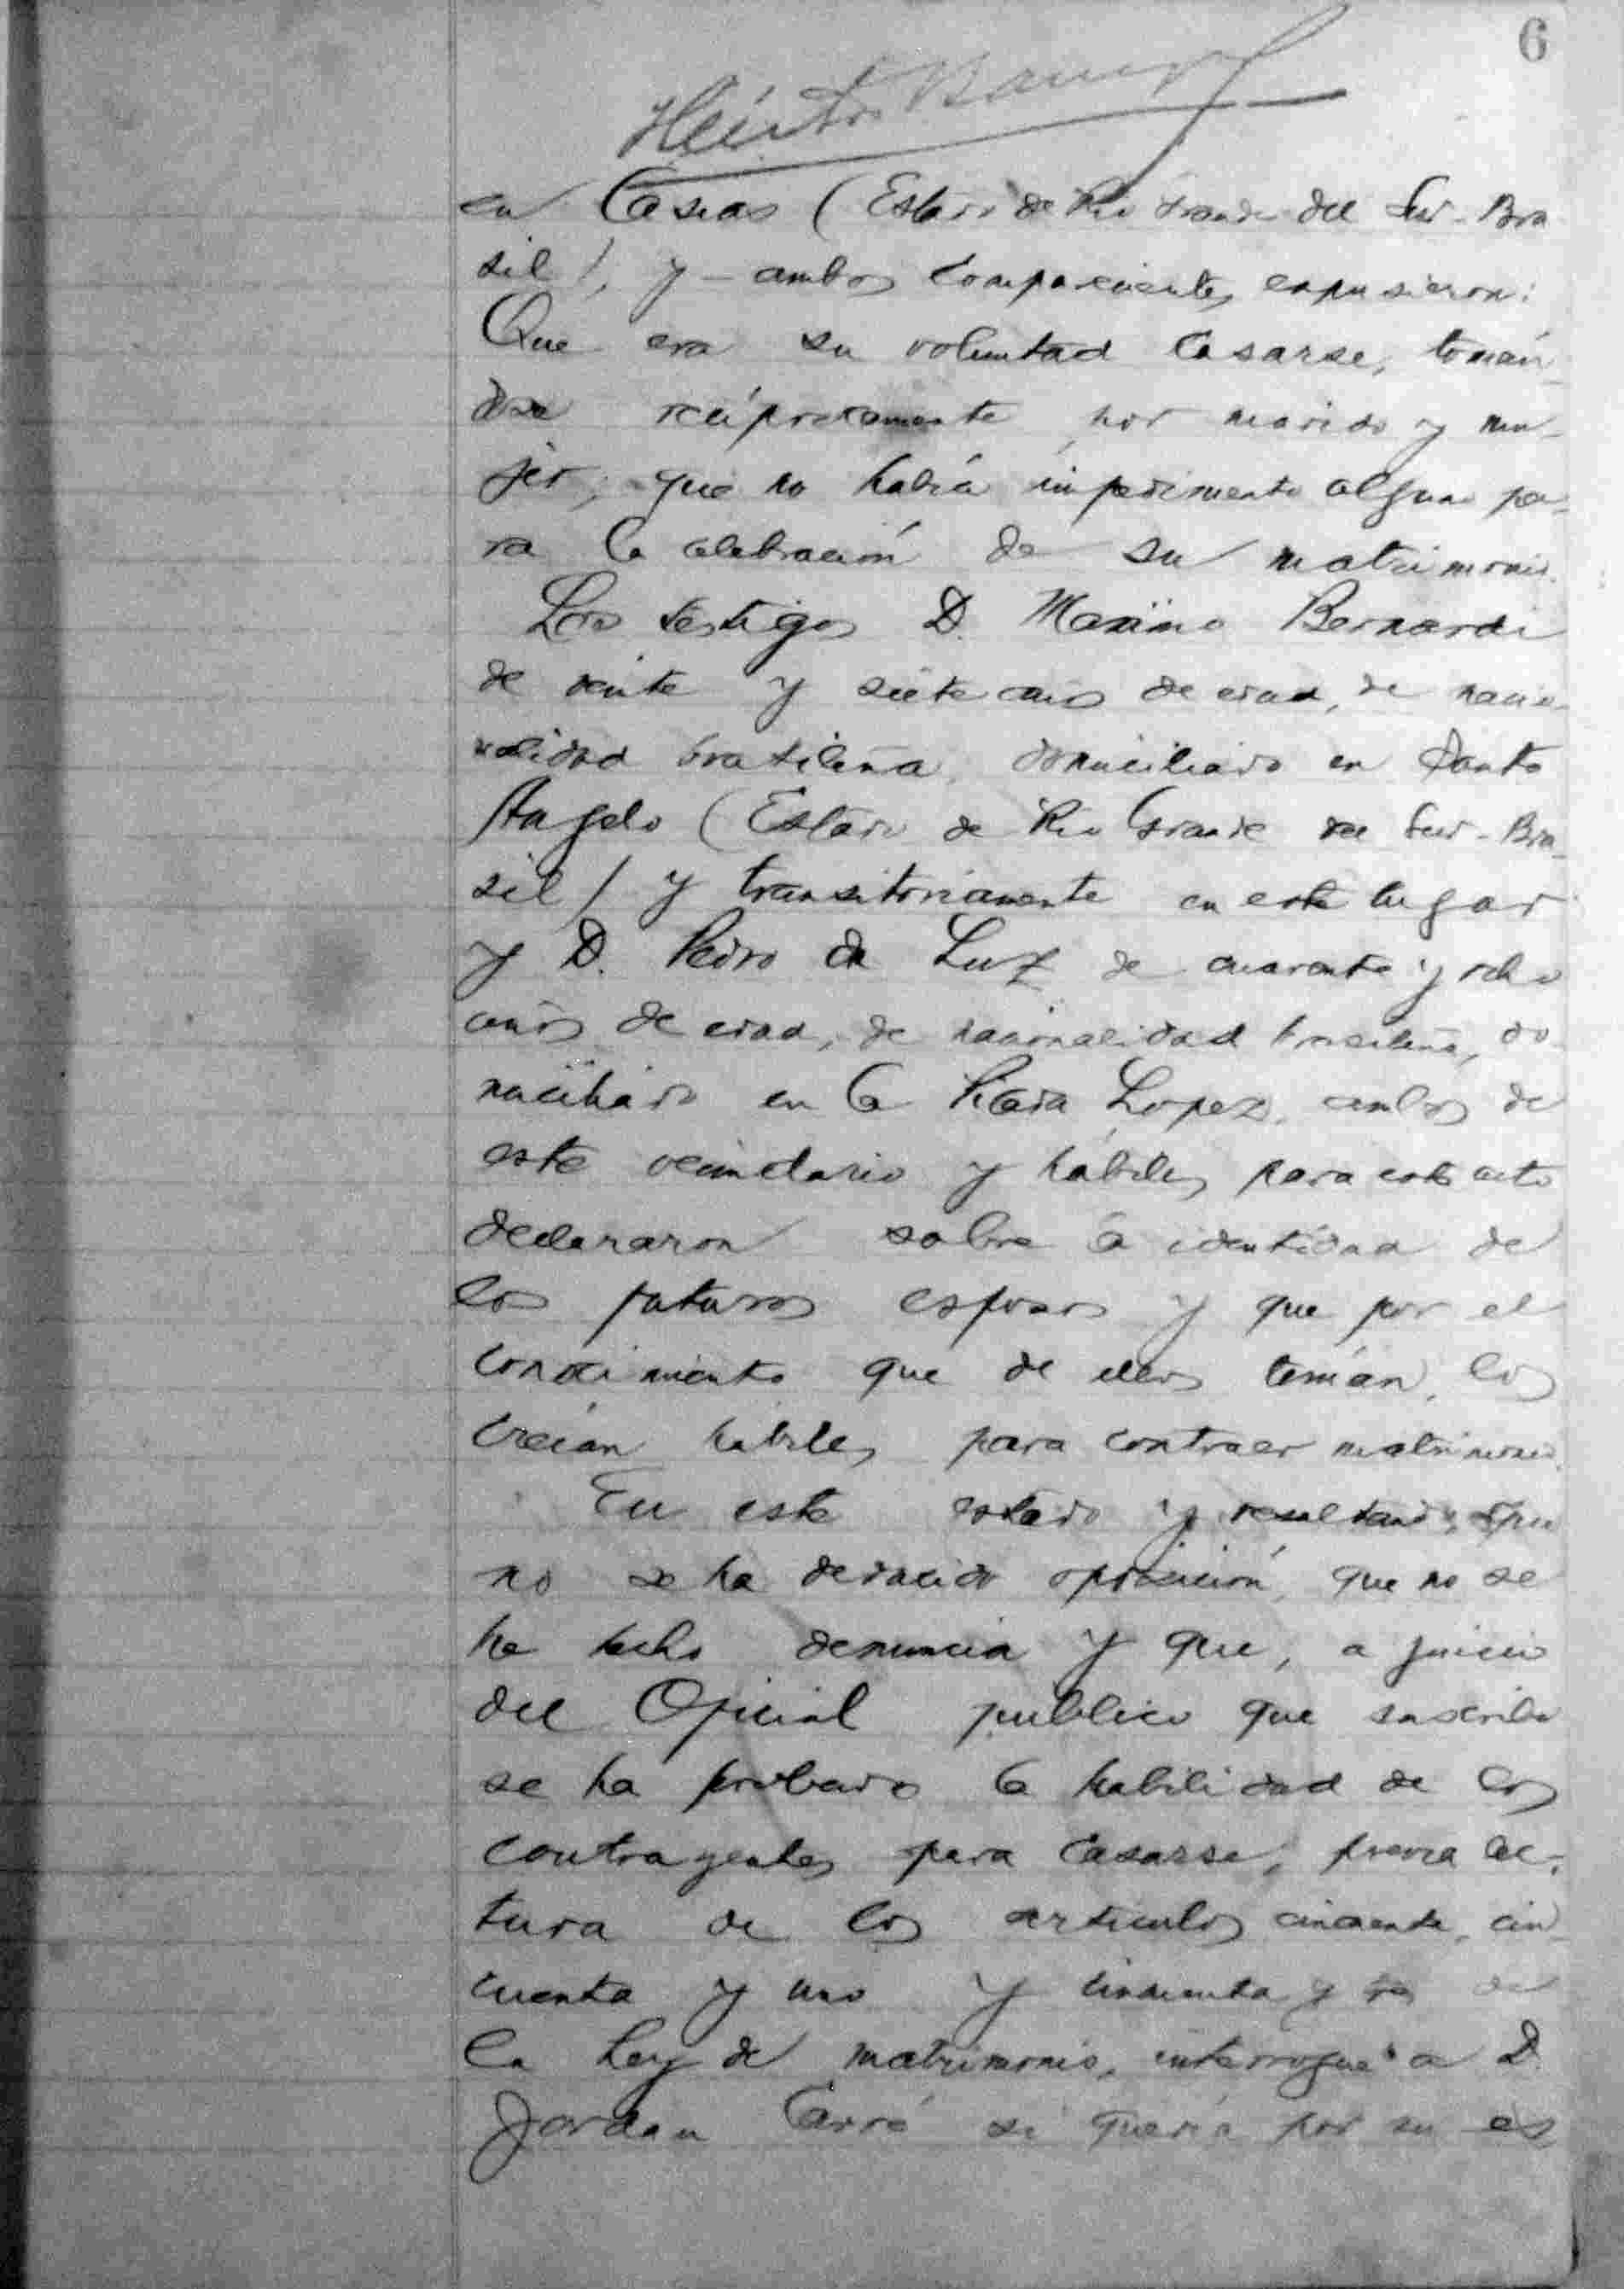 6
Héctor
en Casias (Estado de Rio Grande del Sur - Bra
sil), y - ambos comparecientes expusieron:
Que era su voluntad casarse, toman-
dose recíprocamente por marido y mu-
jer; que no había impedimento alguno pa-
ra la celebración de su matrimonio.
Los testigos D. Maximo Bernardi
de veinte y siete años de edad, de nacio-
nalidad brasileña, domiciliado en Santo
Angelo (Estado de Rio Grande del Sur - Bra-
sil) y transitoriamente en este lugar
y D. Pedro da Luz de cuarenta y ocho
años de edad, de nacionalidad brasileña, do-
miciliado en la Picada Lopez, ambos de
este vecindario y hábiles para este acto
declararon sobre la identidad de
los futuros esposos y que por el
conocimiento que de ellos tenían, los
creían hábiles para contraer matrimonio.
En este estado y resultando que
no se ha deducido oposición, que no se
ha hecho denuncia y que, a juicio
del Oficial publico que suscribe
se ha probado la habilidad de los
contrayentes para casarse, previa lec-
tura de los artículos cincuenta, cin-
cuenta y uno y cincuenta y tres de
la Ley de matrimonio, interrogué a D.
Jordan Carré si quería por su es-